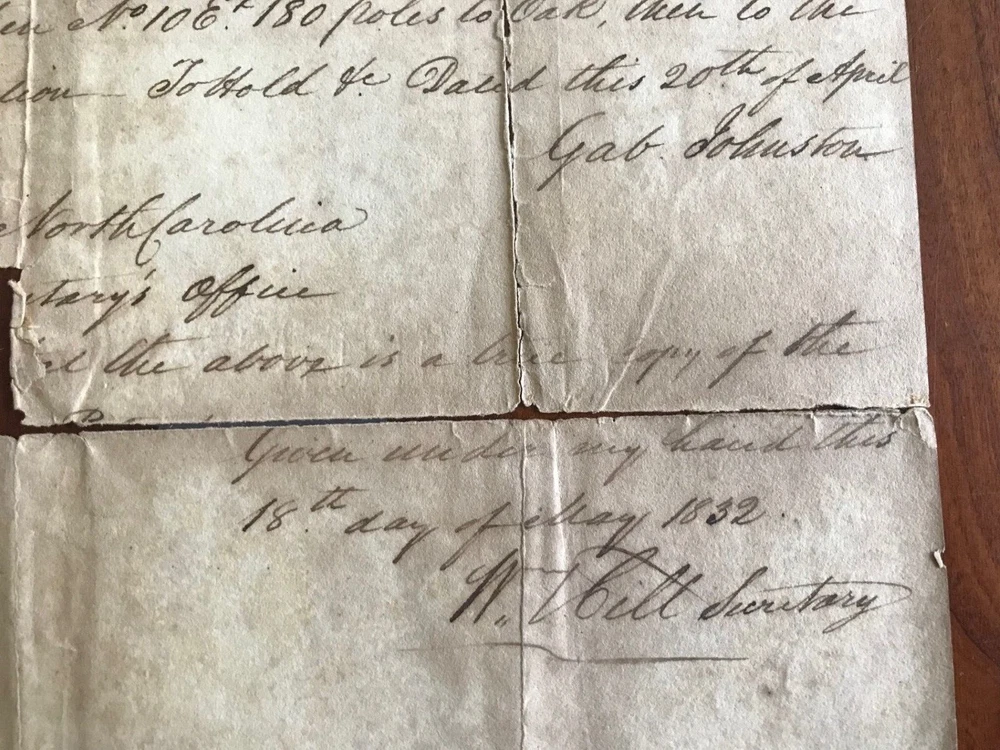 No. 10 Et. 180 poles to Oak, then to the
tion To Hold &c Dated this 20th of April
Gab. Johnston
North Carolina
etary's Office
the above is a true copy of the
Given under my hand this
18th day of May 1832.
W. Hill Secretary